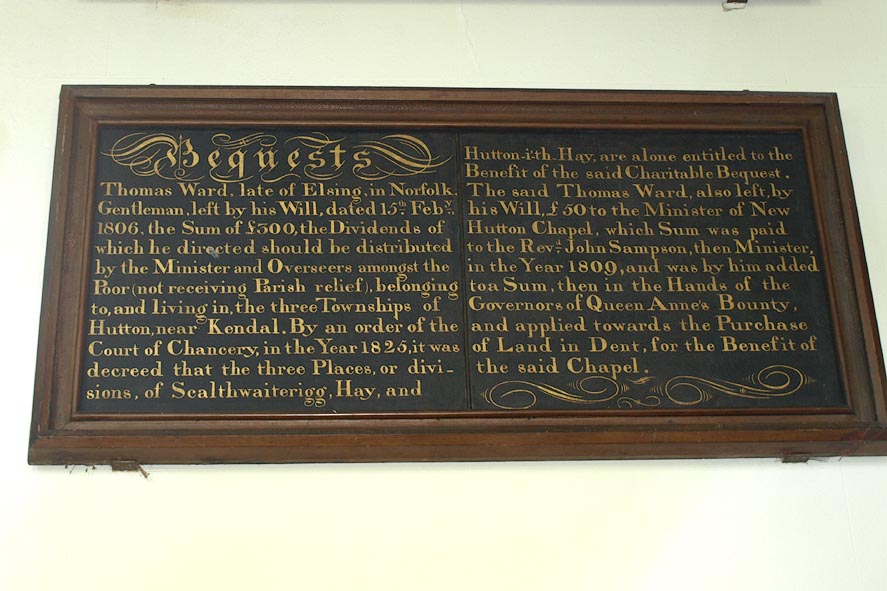 Bequests
Thomas Ward, late of Elsing, in Norfolk.
Gentleman, left by his Will, dated 15th Feby.
1806, the Sum of £300, the Dividends of
which he directed should be distributed
by the Minister and Overseers amongst the
Poor (not receiving Parish relief), belonging
to, and living in, the three Townships of
Hutton, near Kendal. By an order of the
Court of Chancery, in the Year 1825, it was
decreed that the three Places, or divi-
sions, of Scalthwaiterigg, Hay, and
Hutton-i'th-Hay, are alone entitled to the
Benefit of the said Charitable Bequest.
The said Thomas Ward, also left, by
his Will, £50 to the Minister of New
Hutton Chapel, which Sum was paid
to the Revd. John Sampson, then Minister,
in the Year 1809, and was by him added
to a Sum, then in the Hands of the
Governors of Queen Anne's Bounty,
and applied towards the Purchase
of Land in Dent, for the Benefit of
the said Chapel.